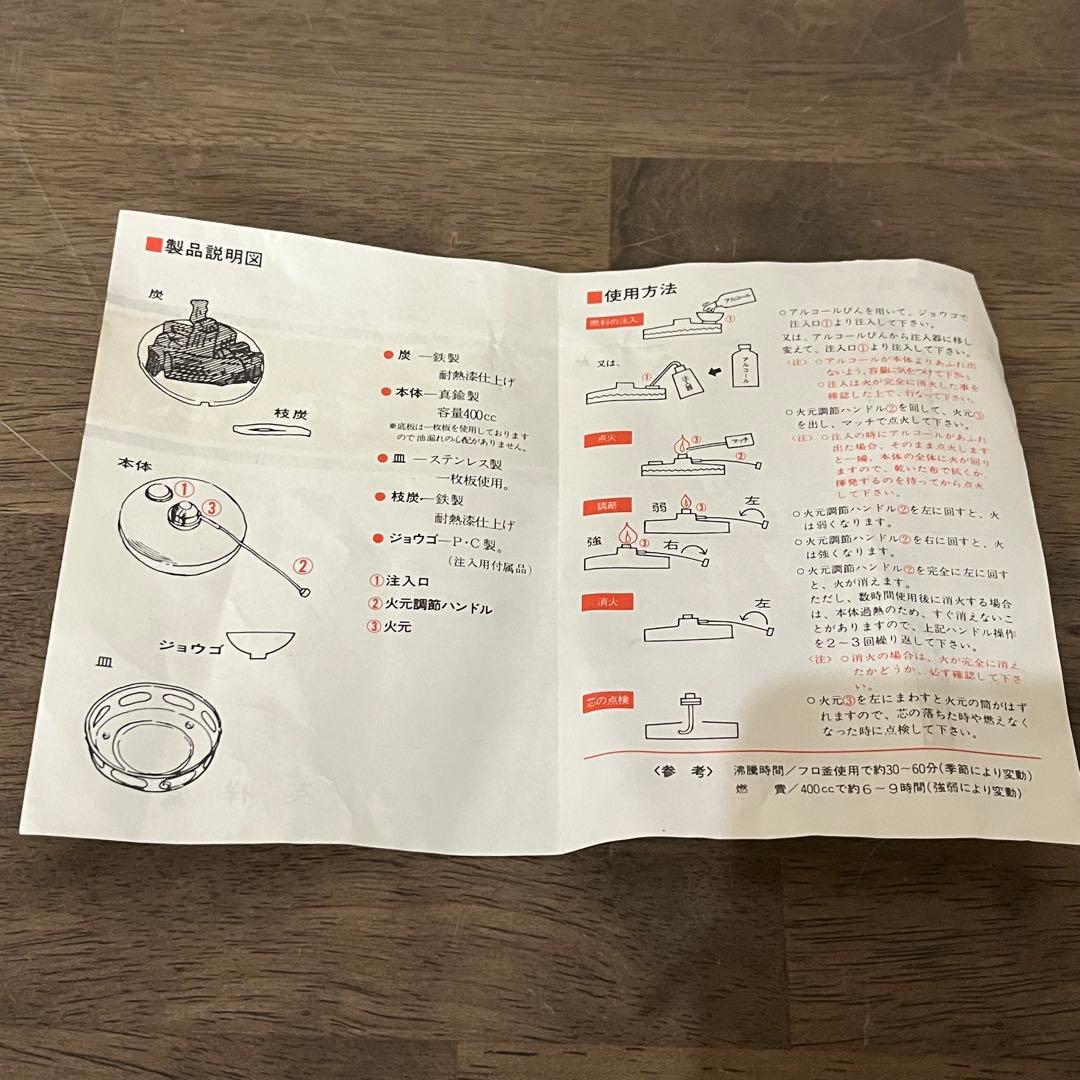 ■製品説明図
炭
枝炭
本体
①
③
②
ジョウゴ
皿
●炭 ―鉄製
耐熱漆仕上げ
●本体―真鍮製
容量400cc
※底板は一枚板を使用しております
ので油漏れの心配がありません。
●皿 ―ステンレス製
一枚板使用。
●枝炭―鉄製
耐熱漆仕上げ
●ジョウゴ―P・C製。
(注入用付属品)
①注入口
②火元調節ハンドル
③火元
■使用方法
燃料の注入
アルコール
①
又は、
①
注入器
アルコール
○アルコールびんを用いて、ジョウゴで
注入口①より注入して下さい。
又は、アルコールびんから注入器に移し
変えて、注入口①より注入して下さい。
〈注〉○アルコールが本体よりあふれ出
ないよう、容量に気をつけて下さい。
○注入は火が完全に消火した事を
確認した上で、行なって下さい。
点火
③
マッチ
②
○火元調節ハンドル②を回して、火元③
を出し、マッチで点火して下さい。
〈注〉○注入の時にアルコールがあふれ
出た場合、そのまま点火します
と一瞬、本体の全体に火が回り
ますので、乾いた布で拭くか、
揮発するのを待ってから点火
して下さい。
調節
弱
③
左
強
③
右
○火元調節ハンドル②を左に回すと、火
は弱くなります。
○火元調節ハンドル②を右に回すと、火
は強くなります。
消火
左
○火元調節ハンドル②を完全に左に回す
と、火が消えます。
ただし、数時間使用後に消火する場合
は、本体過熱のため、すぐ消えないこ
とがありますので、上記ハンドル操作
を2〜3回繰り返して下さい。
〈注〉○消火の場合は、火が完全に消え
たかどうか、必ず確認して下さ
い。
芯の点検
○火元③を左にまわすと火元の筒がはず
れますので、芯の落ちた時や燃えなく
なった時に点検して下さい。
〈参考〉 沸騰時間/フロ釜使用で約30〜60分(季節により変動)
燃 費/400ccで約6〜9時間(強弱により変動)